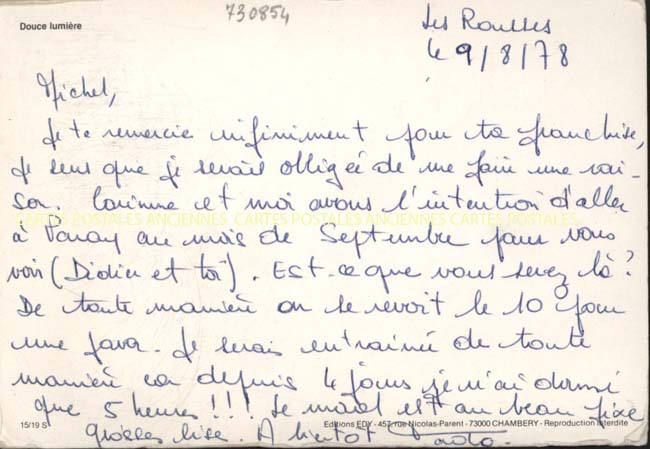 Douce lumière
730854
Les Rousses
le 9/8/78
Michel,
Je te remercie infiniment pour ta franchise,
Je sens que je serais obligée de me faire une rai-
son. Corinne et moi avons l'intention d'aller
CARTES POSTALES ANCIENNES CARTES POSTALES ANCIENNES CARTES POSTALES
à Paray au mois de Septembre pour vous
voir (Didier et toi). Est-ce que vous serez là?
De toute manière on se revoit le 10 pour
une java. Je serais entrainée de toute
manière car depuis 4 jours je n'ai dormi
que 5 heures!!! Le moral est au beau fixe
15/19 S
Editions EDY - 457, rue Nicolas-Parent - 73000 CHAMBERY - Reproduction interdite
Grosses bise. A bientot